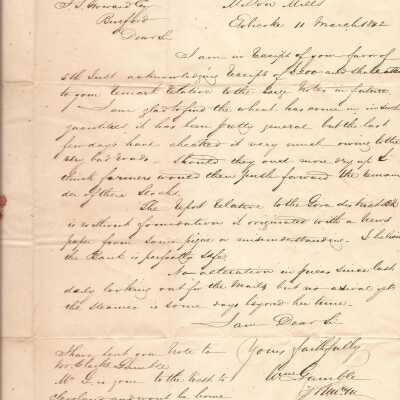 Milton Mills
Etobicoke 11 March 1842
Dear Sir
I am in receipt of your favor of
5th Inst acknowledging receipt of £200 and
to your remark relative to the large Notes in future
I am glad to find the wheat has come in in such
quantities it has been pretty general but the last
few days have checked it very much owing to the
bad roads. Should they once more dry up I
think farmers would then push forward the remain
der of there Stocks.
The report relative to the Gore
is without foundation it originated with a News
paper from some misunderstanding. I believe
the Bank is perfectly safe.
No alteration in prices since last
daily looking out for the Mails but no arrival yet
the Steamer is some days beyond her time.
I am Dear Sir
Yours faithfully
Wm Gamble
I have sent you Note to
Mr G. is gone to the West to
Cleveland and wont be home